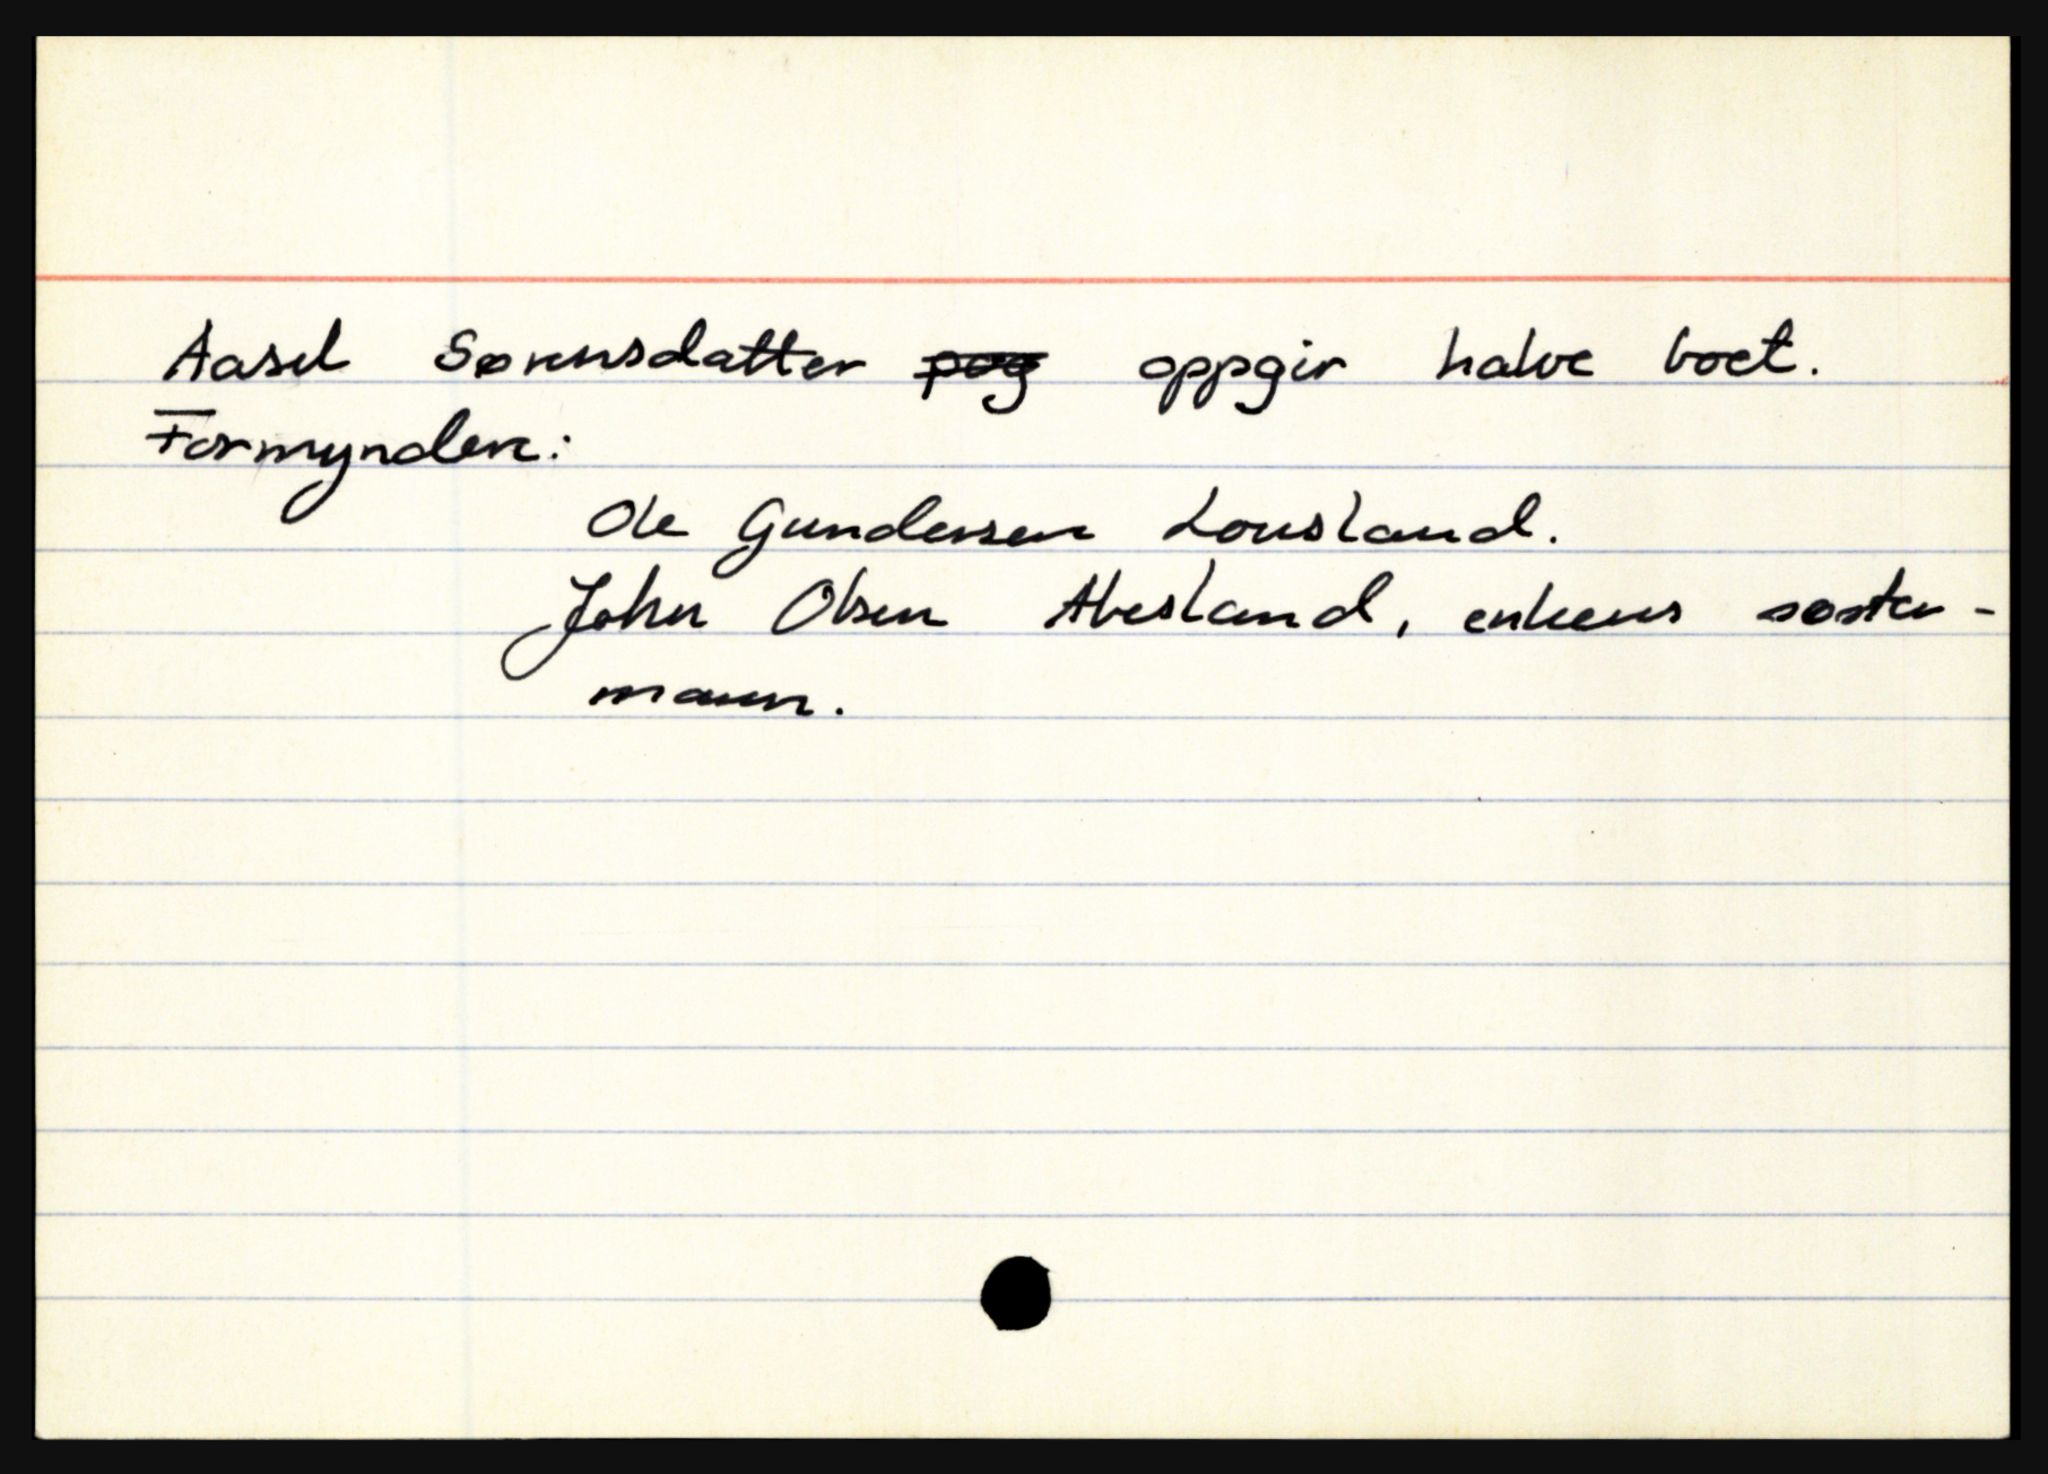 Aasel Sørensdatter pog oppgir halve boet.
Formyndere:
Ole Gundersen Lousland.
John Olsen Abesland, enkens søster-
mann.